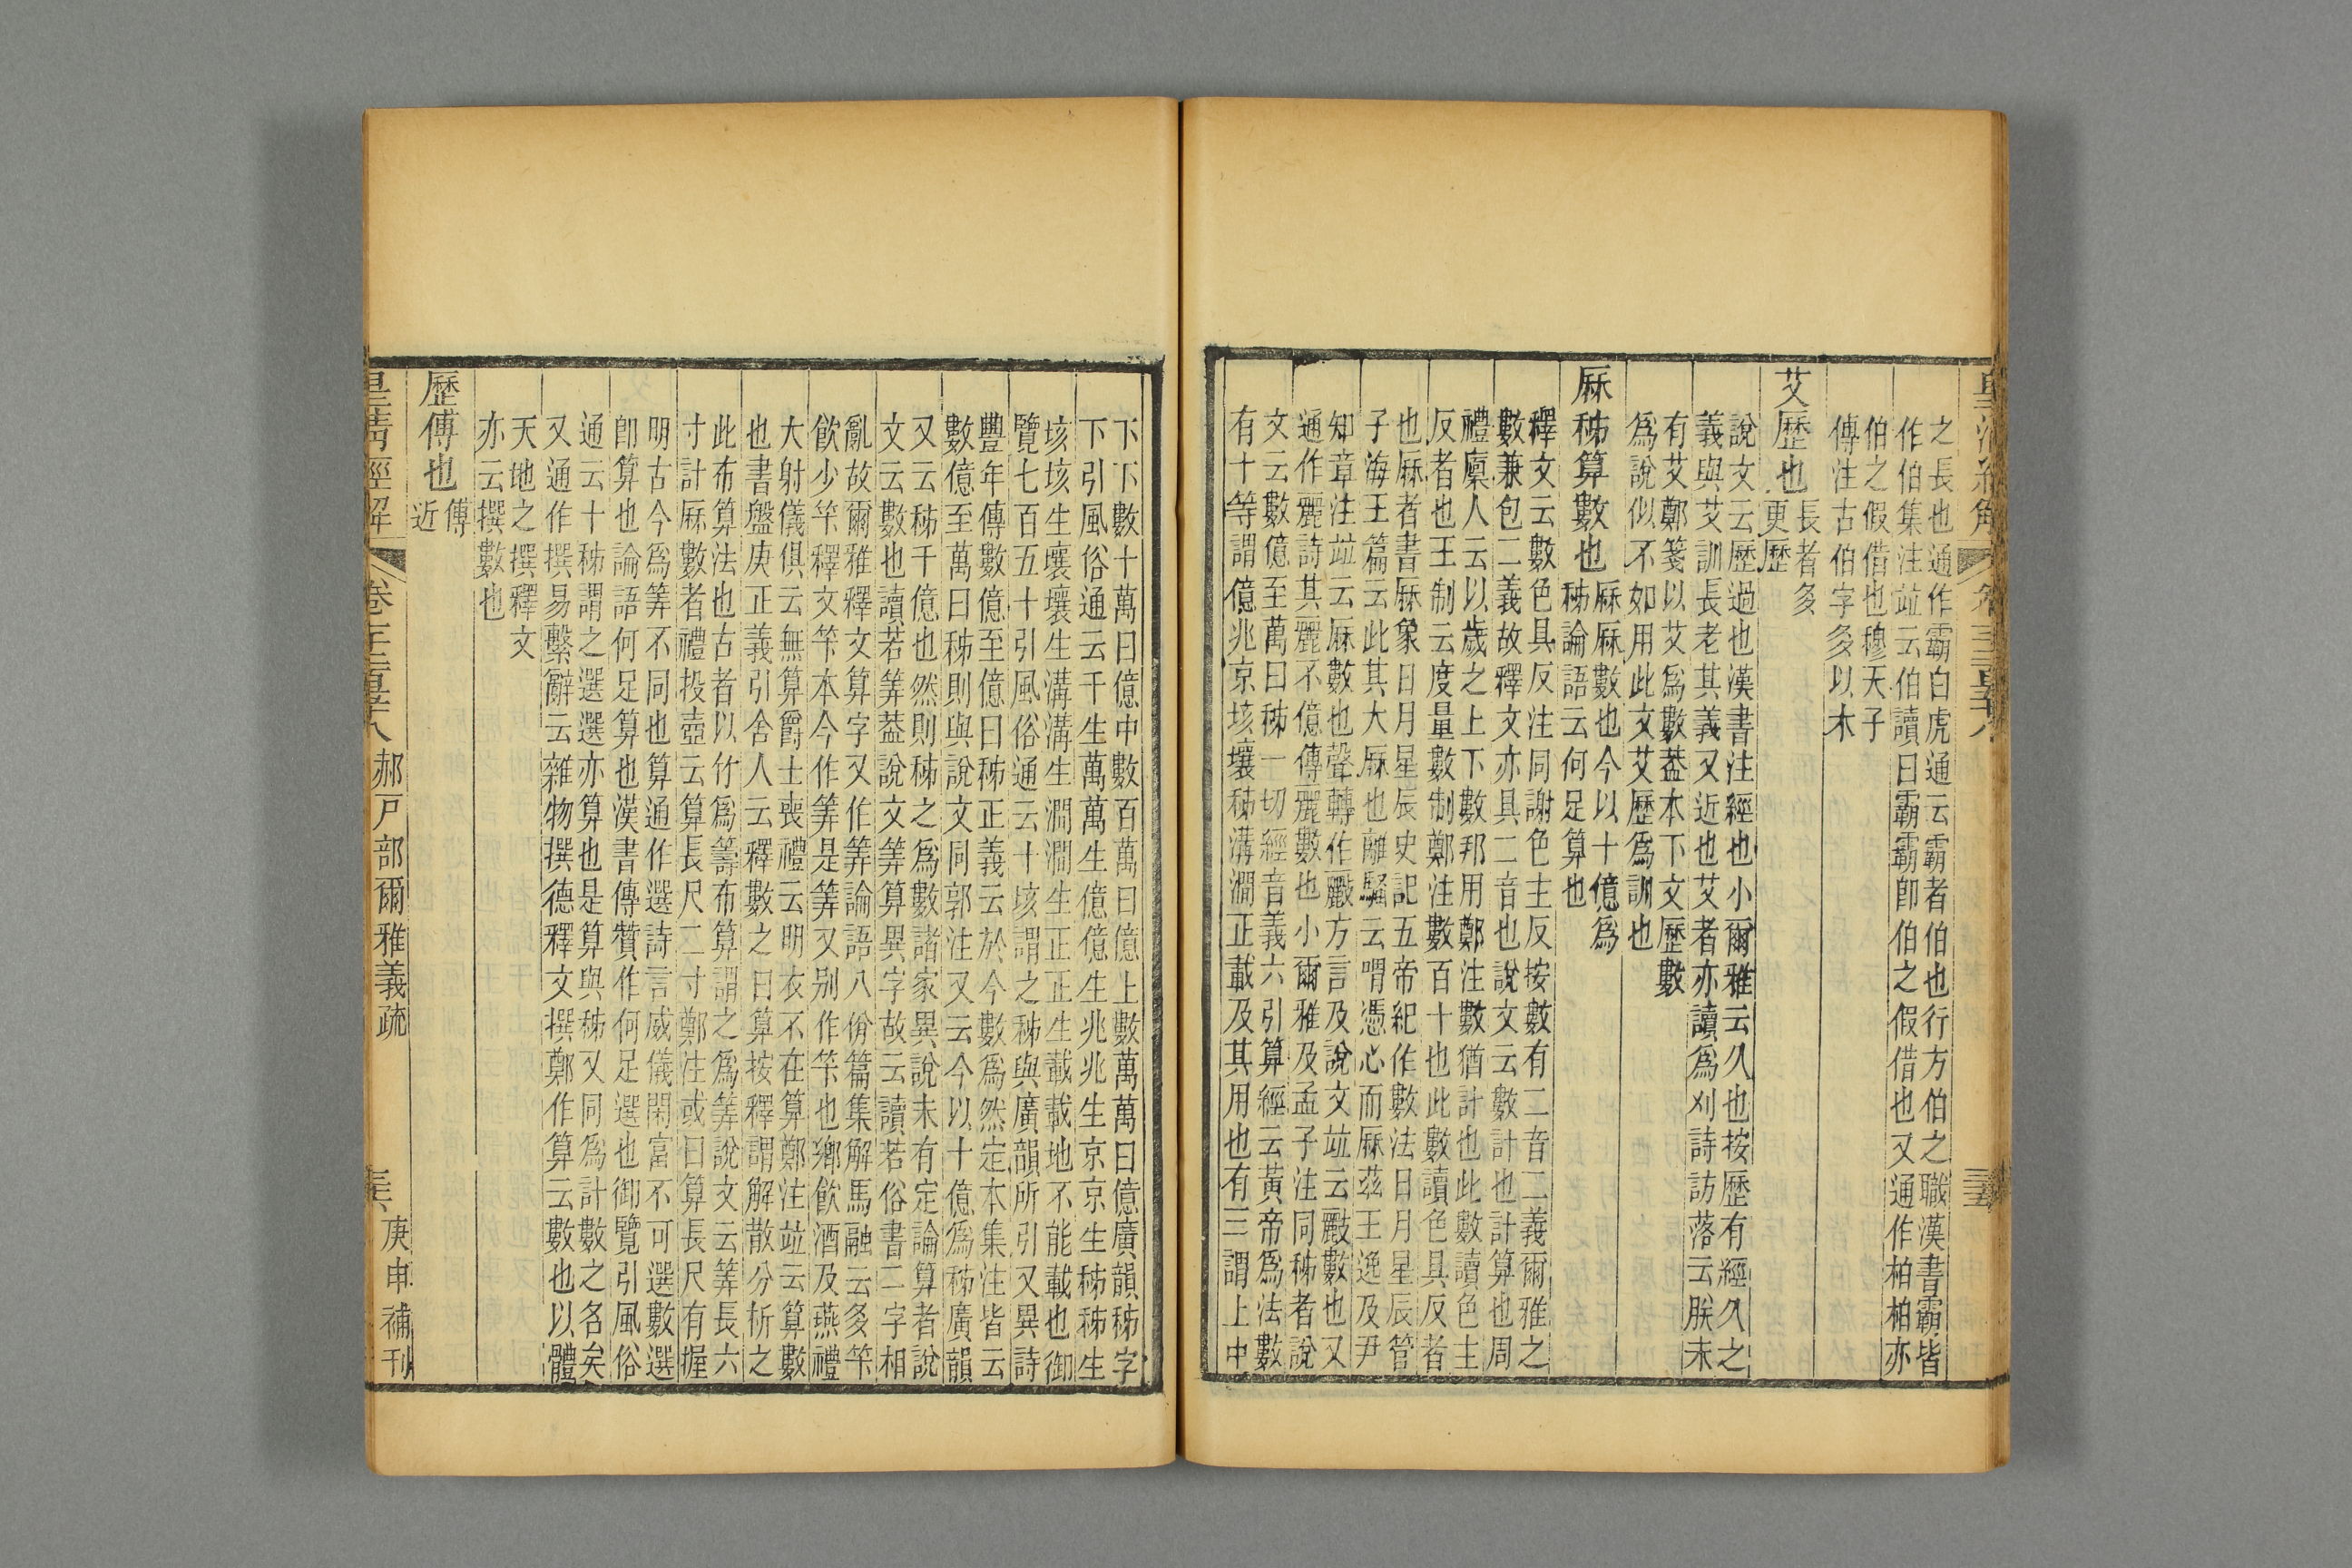 之長也通作霸白虎通云霸者伯也行方伯之職漢書霸皆
作伯集注竝云伯讀曰霸霸卽伯之假借也又通作柏柏亦
伯之假借也穆天子
傳注古伯字多以木
艾歷也長者多
更歷
說文云歷過也漢書注經也小爾雅云久也按歷有經久之
義與艾訓長老其義又近也艾者亦讀爲刈詩訪落云朕未
有艾鄭箋以艾爲數葢本下文歷數
爲說似不如用此文艾歷爲訓也
厤秭算數也厤厤數也今以十億爲
秭論語云何足算也
釋文云數色具反注同謝色主反按數有二音二義爾雅之
數兼包二義故釋文亦具二音也說文云數計也計算也周
禮廩人云以歲之上下數邦用鄭注數猶計也此數讀色主
反者也王制云度量數制鄭注數百十也此數讀色具反者
也厤者書厤象日月星辰史記五帝紀作數法日月星辰管
子海王篇云此其大厤也離騷云喟憑心而厤茲王逸及尹
知章注竝云厤數也聲轉作䥶方言及說文竝云䥶數也又
通作麗詩其麗不億傳麗數也小爾雅及孟子注同秭者說
文云數億至萬曰秭一切經音義六引算經云黃帝爲法數
有十等謂億兆京垓壤秭溝澗正載及其用也有三謂上中
下下數十萬曰億中數百萬曰億上數萬萬曰億廣韻秭字
下引風俗通云千生萬萬生億億生兆兆生京京生秭秭生
垓垓生壤壤生溝溝生澗澗生正正生載載地不能載也御
覽七百五十引風俗通云十垓謂之秭與廣韻所引又異詩
豐年傳數億至億曰秭正義云於今數爲然定本集注皆云
數億至萬曰秭則與說文同郭注又云今以十億爲秭廣韻
又云秭千億也然則秭之爲數諸家異說未有定論算者說
文云數也讀若筭葢說文筭算異字故云讀若俗書二字相
亂故爾雅釋文算字又作筭論語八佾篇集解馬融云多筭
飮少筭釋文筭本今作筭是筭又别作筭也鄕飮酒及燕禮
大射儀俱云無算爵士喪禮云明衣不在算鄭注竝云算數
也書盤庚正義引舍人云釋數之曰算按釋謂解散分析之
此布算法也古者以竹爲籌布算謂之爲筭說文云筭長六
寸計厤數者禮投壺云算長尺二寸鄭注或曰算長尺有握
明古今爲筭不同也算通作選詩言威儀閑富不可選數選
卽算也論語何足算也漢書傳贊作何足選也御覽引風俗
通云十秭謂之選選亦算也是算與秭又同爲計數之名矣
又通作撰易繫辭云雜物撰德釋文撰鄭作算云數也以體
天地之撰釋文
亦云撰數也
歷傅也傅
近
皇淸經解 卷千二百五十八 郝戸部爾雅義疏 庚申補刊